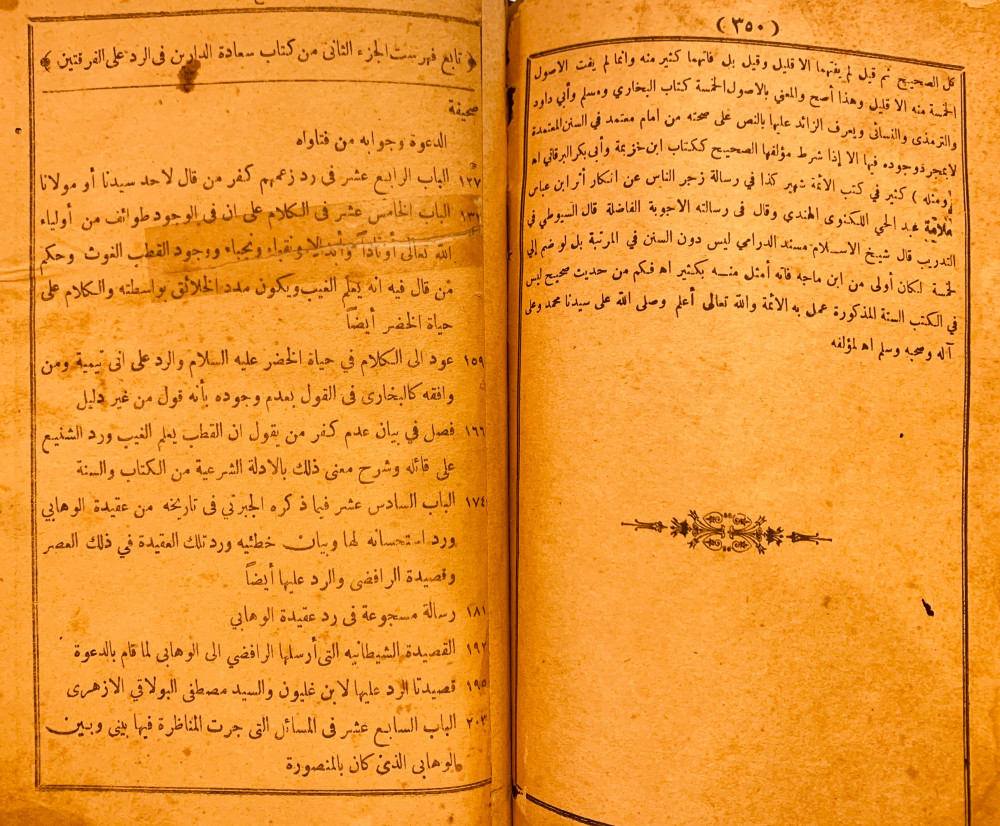 ( ٣٥٠ )
كل الصحيح ثم قيل لم يفتهما الا قليل وقيل بل فاتهما كثير منه وانما لم يفت الاصول
الخمسة منه الا قليل وهذا أصح والمعني بالاصول الخمسة كتاب البخاري ومسلم وأبي داود
والترمذى والنسائى ويعرف الزائد عليها بالنص على صحته من امام معتمد في السنن المعتمدة
لا بمجرد وجوده فيها الا إذا شرط مؤلفها الصحيح ككتاب ابن خزيمة وأبى بكر البرقاني اه
( ومثله ) كثير في كتب الائمة شهير كذا في رسالة زجر الناس عن انكار أثر ابن عباس
محمد عبد الحي اللكنوى الهندي وقال فى رسالته الاجوبة الفاضلة قال السيوطي في
التدريب قال شيخ الاسلام مسند الدرامي ليس دون السنن في المرتبة بل لو ضم إلي
لخمسة لكان أولى من ابن ماجه فانه أمثل منه بكثير اه فكم من حديث صحيح ليس
في الكتب الستة المذكورة عمل به الائمة والله تعالى أعلم وصلى الله على سيدنا محمد وعلى
آله وصحبه وسلم اه لمؤلفه
﴿ تابع فهرست الجزء الثانى من كتاب سعادة الدارين فى الرد على الفرقتين ﴾
صحيفة
الدعوة وجوابه من فتاواه
١٢٧ الباب الرابع عشر فى رد زعمهم كفر من قال لاحد سيدنا أو مولانا
١٣١ الباب الخامس عشر فى الكلام على ان فى الوجود طوائف من أولياء
الله تعالى أوتاداً وأبدالا ونقباء ونجباء ووجود القطب الغوث وحكم
من قال فيه انه يعلم الغيب ويكون مدد الخلائق بواسطته والكلام على
حياة الخضر أيضاً
١٥٩ عود الى الكلام في حياة الخضر عليه السلام والرد على انى تيمية ومن
وافقه كالبخارى فى القول بعدم وجوده بأنه قول من غير دليل
١٦٦ فصل في بيان عدم كفر من يقول ان القطب يعلم الغيب ورد الشنيع
على قائله وشرح معنى ذلك بالادلة الشرعية من الكتاب والسنة
١٧٤ الباب السادس عشر فيما ذكره الجبرتي فى تاريخه من عقيدة الوهابي
ورد استحسانه لها وبيان خطئيه ورد تلك العقيدة في ذلك العصر
وقصيدة الرافضى والرد عليها أيضاً
١٨١ رسالة مسجوعة فى رد عقيدة الوهابي
١٩٢ القصيدة الشيطانيه التى أرسلها الرافضي الى الوهابى لما قام بالدعوة
١٩٥ قصيدتا الرد عليها لابن غليون والسيد مصطفى البولاقي الازهرى
٢٠٣ الباب السابع عشر فى المسائل التى جرت المناظرة فيها بينى وبين
الوهابى الذى كان بالمنصورة